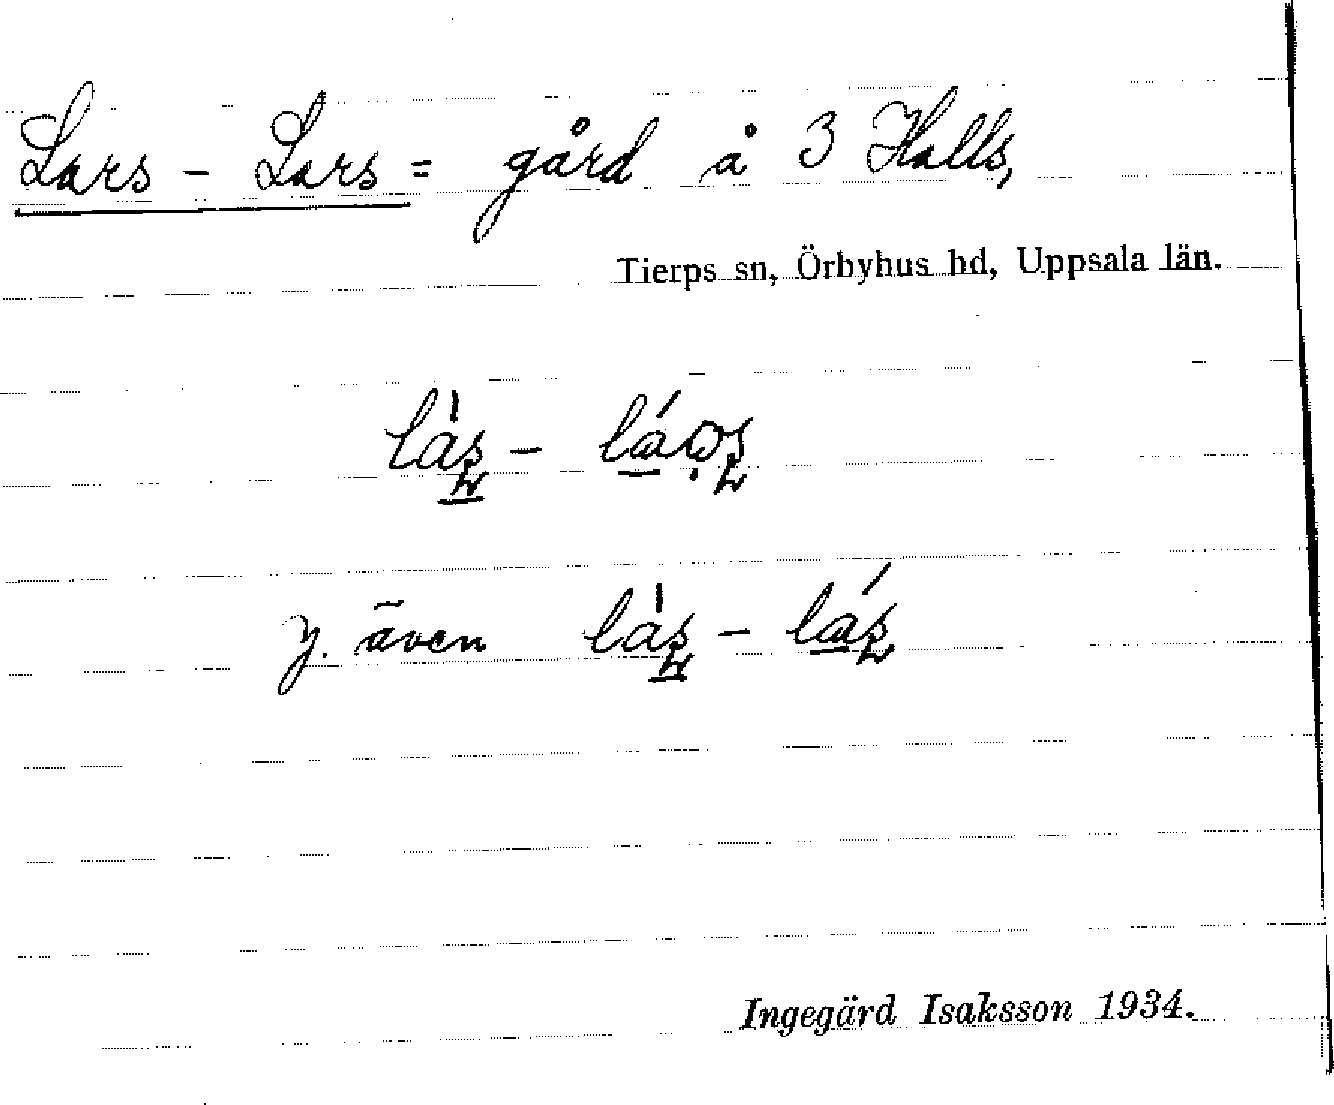 Lars - Lars = gård å 3 Halls,
Tierps sn, Örbyhus hd, Uppsala län.
y. även
Ingegärd Isaksson 1934.